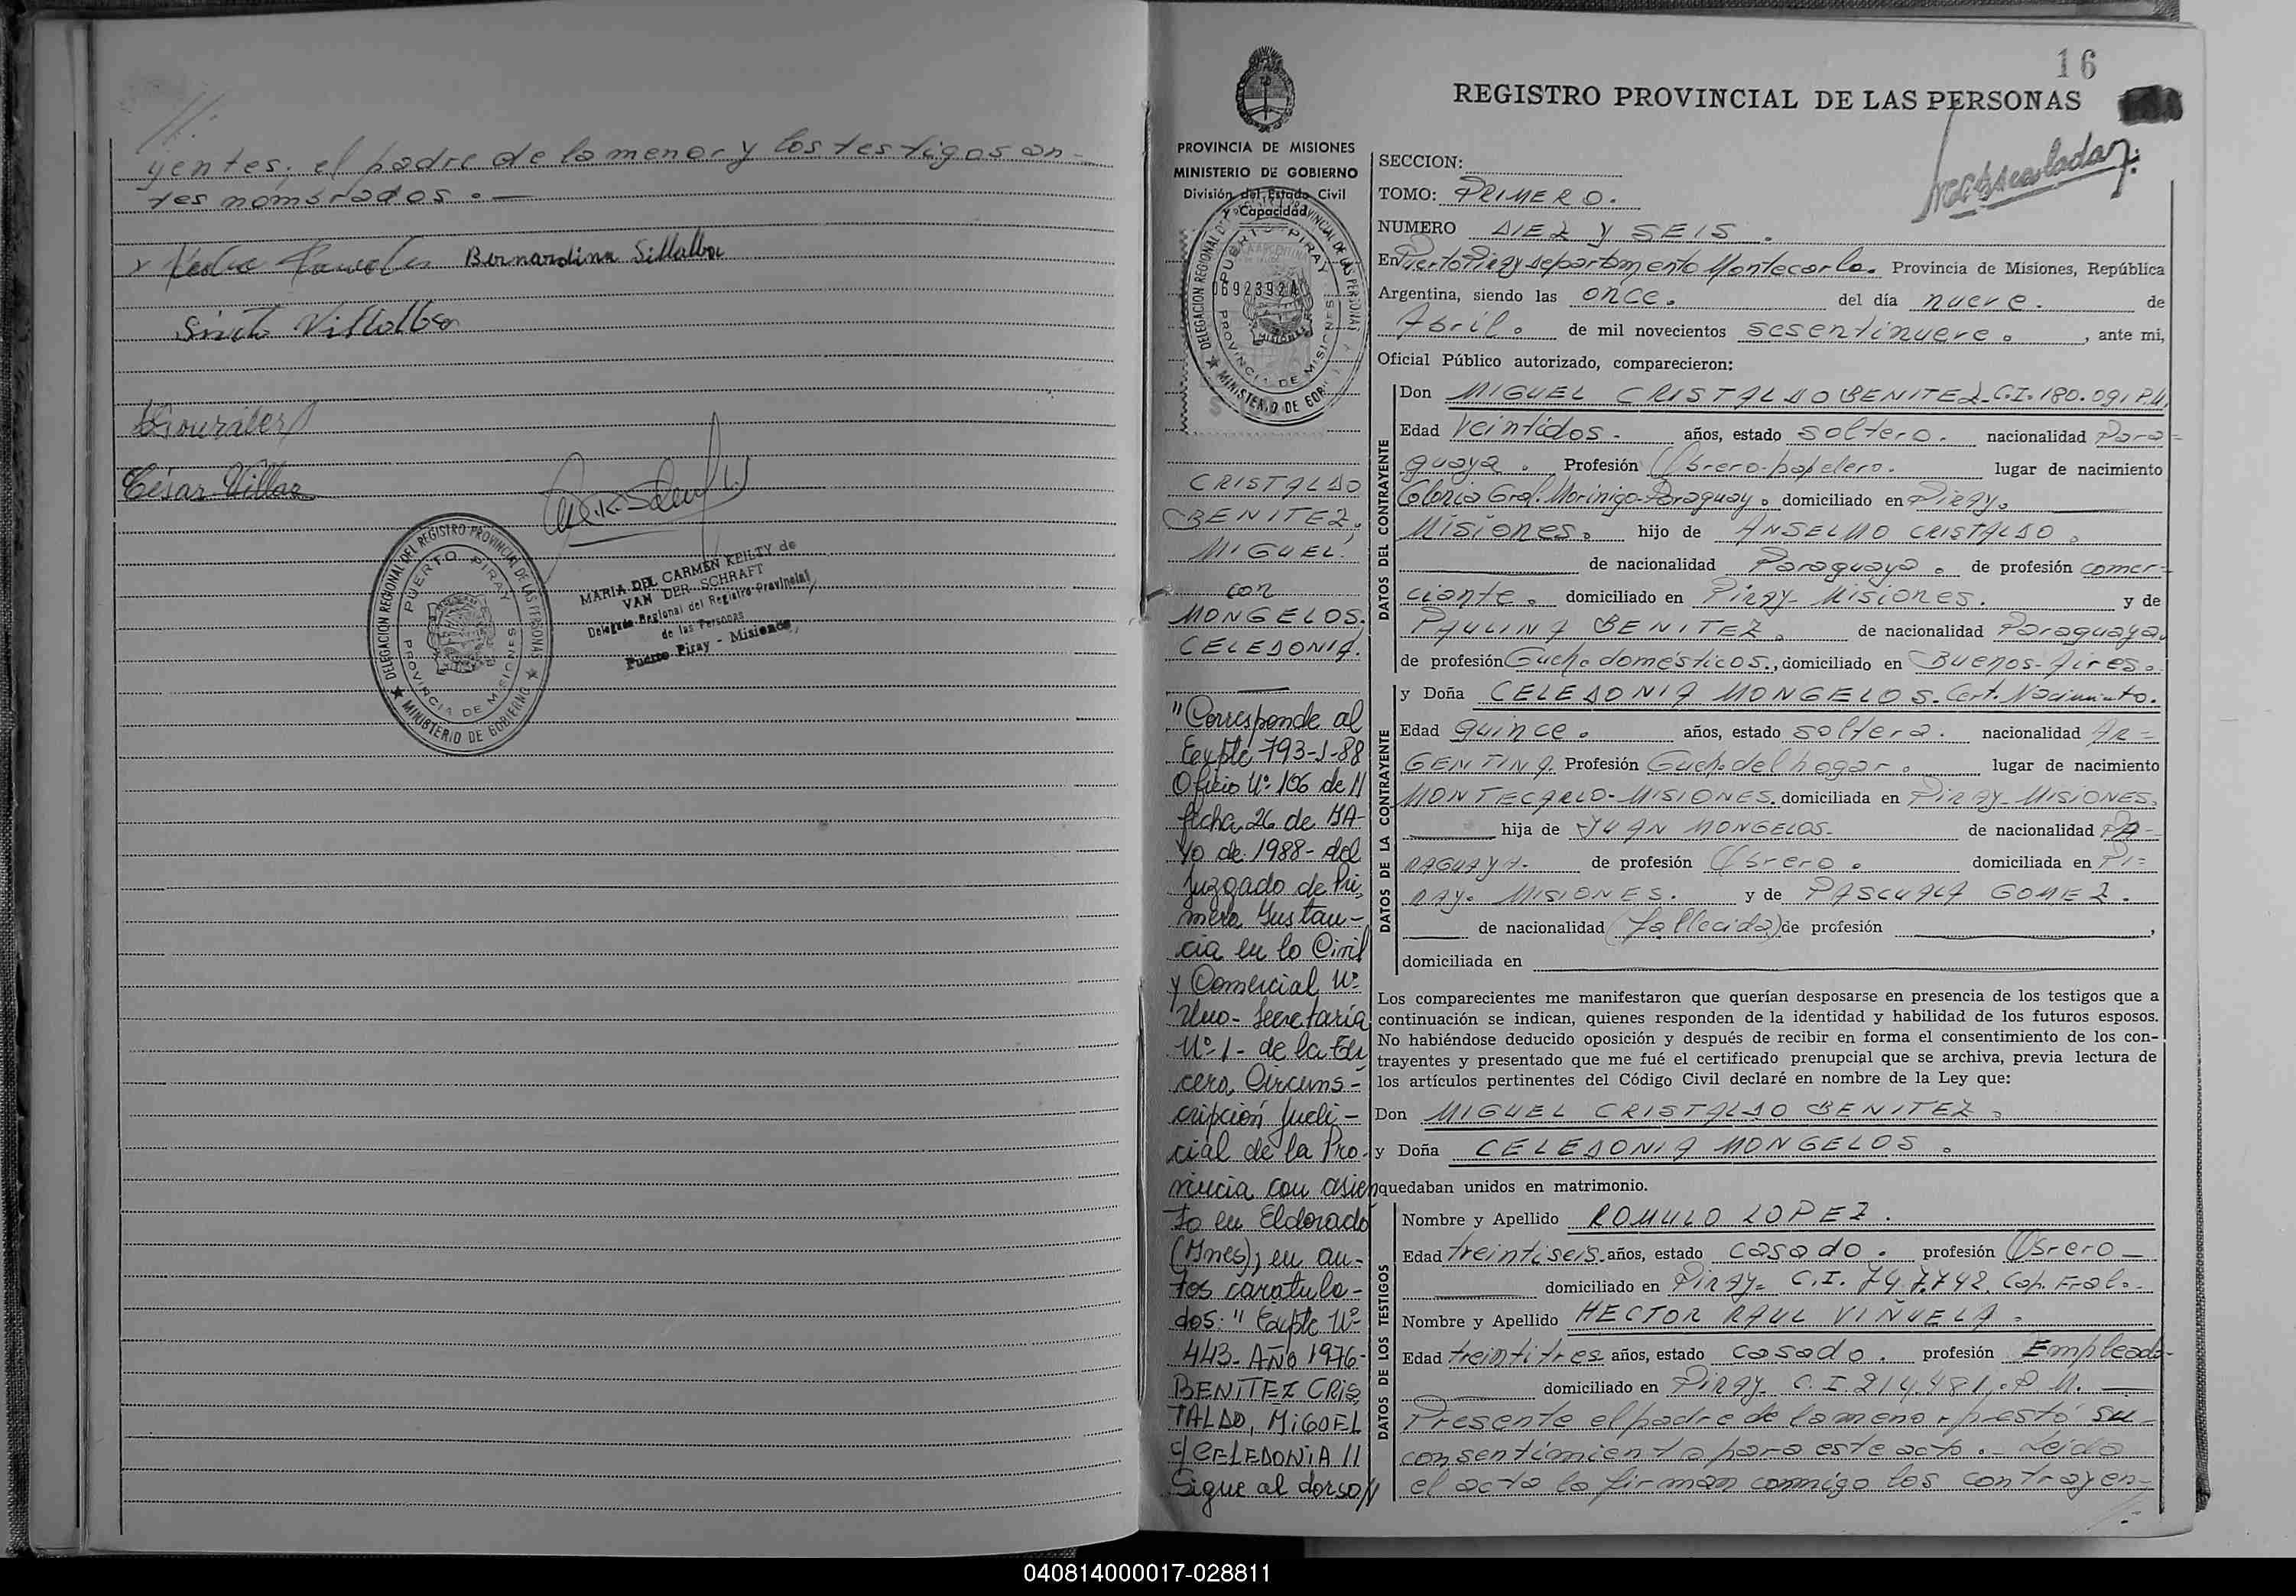 //.
yentes, el padre de la menor y los testigos an-
tes nombrados.—
Bernardina Sillalba
Sinta Villalba
González
César Villar
DELEGACION REGIONAL DEL REGISTRO PROVINCIAL DE LAS PERSONAS
PUERTO PIRAY
PROVINCIA DE MISIONES
★ MINISTERIO DE GOBIERNO ★
MARIA DEL CARMEN KEILTY de
VAN DER SCHRAFT
Delegada Regional del Registro Provincial
de las Personas
Puerto Piray - Misiones
16
REGISTRO PROVINCIAL DE LAS PERSONAS
PROVINCIA DE MISIONES
MINISTERIO DE GOBIERNO
División del Estado Civil
y Capacidad
DELEGACION REGIONAL DEL REGISTRO PROVINCIAL DE LAS PERSONAS
PUERTO PIRAY
0692392A
PROVINCIA DE MISIONES
★ MINISTERIO DE GOB
SECCION:
TOMO: PRIMERO.
NUMERO DIEZ Y SEIS.
En Puerto Piray departamento Montecarlo. Provincia de Misiones, República
Argentina, siendo las once. del día nueve. de
Abril. de mil novecientos sesentinueve. , ante mi,
Oficial Público autorizado, comparecieron:
DATOS DEL CONTRAYENTE
Don MIGUEL CRISTALDO BENITEZ. C.I. 180.091 P.M.
Edad Veintidos. años, estado soltero. nacionalidad Para=
guaya. Profesión Obrero-papelero. lugar de nacimiento
Colonia Gral. Morinigo-Paraguay. domiciliado en Piray.
Misiones. hijo de ANSELMO CRISTALDO.
de nacionalidad Paraguaya. de profesión comer=
ciante. domiciliado en Piray- Misiones. y de
PAULINA BENITEZ. de nacionalidad Paraguaya.
de profesión Queh. domésticos., domiciliado en Buenos-Aires.
DATOS DE LA CONTRAYENTE
y Doña CELEDONIA MONGELOS. Cert. Nacimiento.
Edad quince. años, estado soltera. nacionalidad AR=
GENTINA. Profesión Queh. del hogar. lugar de nacimiento
MONTECARLO-MISIONES. domiciliada en PIRAY-MISIONES.
hija de JUAN MONGELOS- de nacionalidad PA-
RAGUAYA. de profesión Obrero. domiciliada en PI=
RAY. MISIONES. y de PASCUALA GOMEZ.
de nacionalidad (fallecida) de profesión ,
domiciliada en
Los comparecientes me manifestaron que querían desposarse en presencia de los testigos que a
continuación se indican, quienes responden de la identidad y habilidad de los futuros esposos.
No habiéndose deducido oposición y después de recibir en forma el consentimiento de los con-
trayentes y presentado que me fué el certificado prenupcial que se archiva, previa lectura de
los artículos pertinentes del Código Civil declaré en nombre de la Ley que:
Don MIGUEL CRISTALDO BENITEZ.
y Doña CELEDONIA MONGELOS.
quedaban unidos en matrimonio.
DATOS DE LOS TESTIGOS
Nombre y Apellido ROMULO LOPEZ.
Edad treintiseis. años, estado casado. profesión Obrero—
domiciliado en Piray= C.I. 747.742. Cap. Fral.-
Nombre y Apellido HECTOR RAUL VIÑUELA.
Edad treintitres años, estado casado. profesión Emplead-
domiciliado en Piray. C.I. 214.481. P.M. —
Presente el padre de la menor prestó su
consentimiento para este acto.- Leida
el acta la firman conmigo los contrayen=
//.
CRISTALDO
BENITEZ,
MIGUEL.
con
MONGELOS.
CELEDONIA.
"Corresponde al
Expte 793-J-88
Oficio Nº 106 de //
fecha 26 de MA-
YO de 1988- del
Juzgado de Pri
mera Instan-
cia en lo Civil
y Comercial Nº
Uno- Secretaría
Nº-1- de la Ter
cera Circuns-
cripción Judi-
cial de la Pro-
vincia con asien
to en Eldorado
(Mnes), en au-
tos caratula-
dos: "Expte Nº
443- AÑO 1976-
BENITEZ CRIS
TALDO, MIGUEL
c/ CELEDONIA //
Sigue al dorso//
040814000017-028811